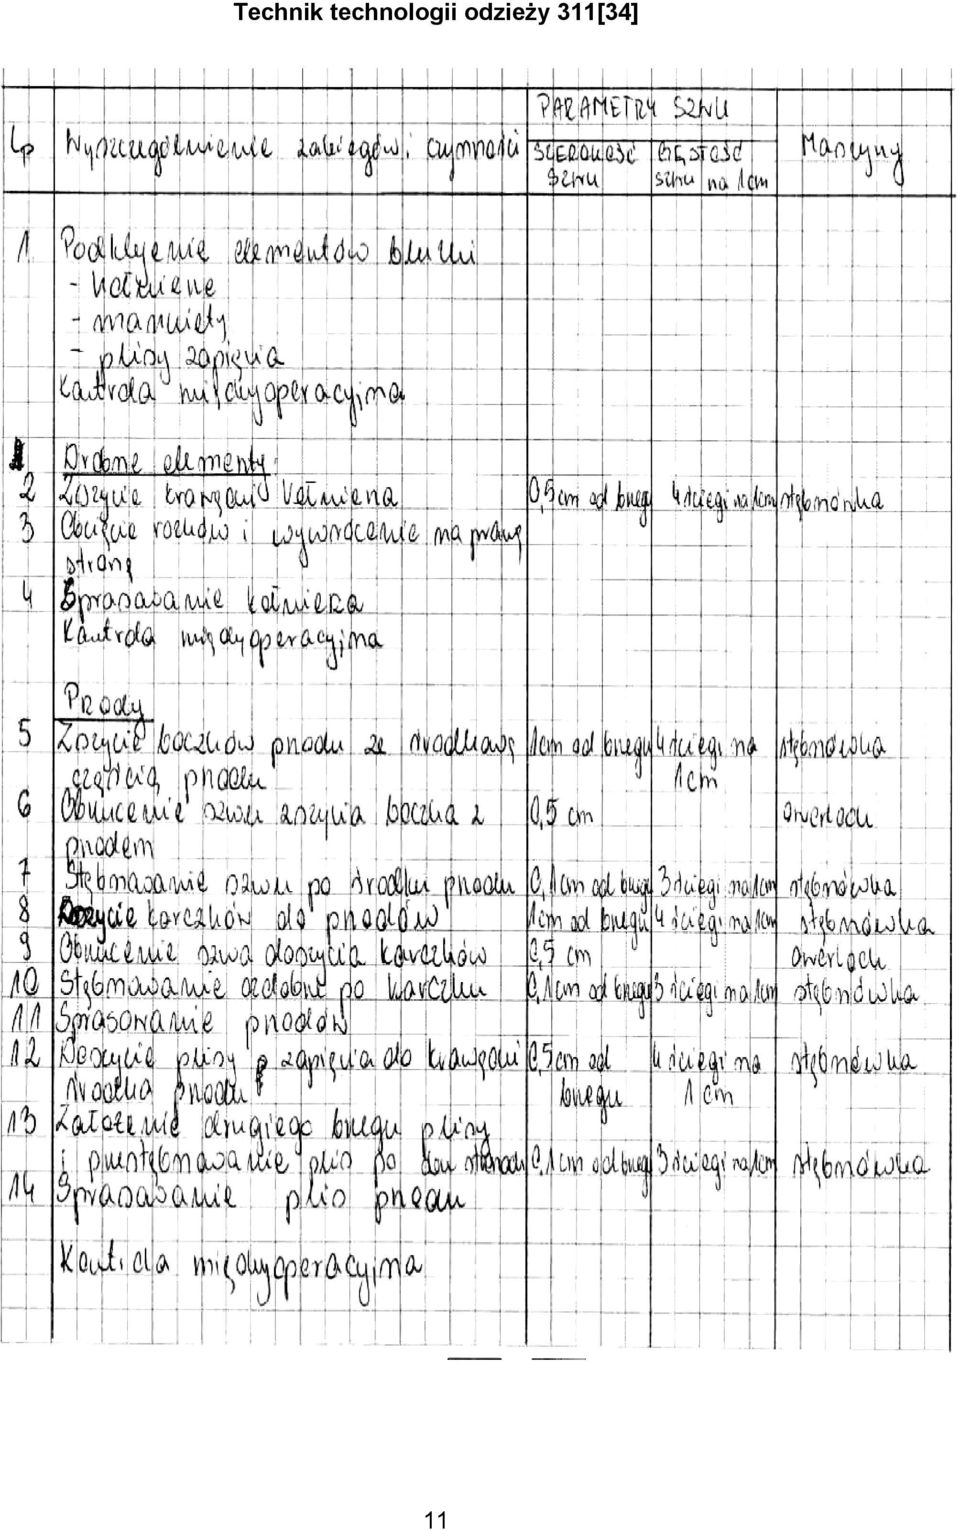 Technik technologii odzieży 311[34]
PARAMETRY SZWU
Lp Wyszczególnienie zabiegów i czynności SZEROKOŚĆ GĘSTOŚĆ Maszyny
SZWU szwu na 1cm
1 Podklejenie elementów bluzki
- kołnierze
- mankiety
- plisy zapięcia
Kontrola międzyoperacyjna
Drobne elementy:
2 Zszycie krawędzi kołnierza 0,5 cm od brzegu 4 ściegi na 1cm stębnówka
3 Obcięcie rożków i wywrócenie na prawą
stronę
4 Sprasowanie kołnierza
Kontrola międzyoperacyjna
Przody
5 Zszycie boczków przodu ze środkową 1cm od brzegu 4 ściegi na stębnówka
częścią przodu 1cm
6 Obrzucenie szwu zszycia boczka z 0,5 cm owerlock
przodem
7 Stębnowanie szwu po środku przodu 0,1cm od brzegu 3 ściegi na 1cm stębnówka
8 Doszycie karczków do przodów 1cm od brzegu 4 ściegi na 1cm stębnówka
9 Obrzucenie szwa doszycia karczków 0,5 cm owerlock
10 Stębnowanie ozdobne po karczku 0,1cm od brzegu 3 ściegi na 1cm stębnówka
11 Sprasowanie przodów
12 Doszycie plisy zapięcia do krawędzi 0,5cm od 4 ściegi na stębnówka
środka przodu brzegu 1cm
13 Założenie drugiego brzegu plisy
i przestębnowanie plis po dwu stronach 0,1cm od brzegu 3 ściegi na 1cm stębnówka
14 Sprasowanie plis przodu
Kontrola międzyoperacyjna
11